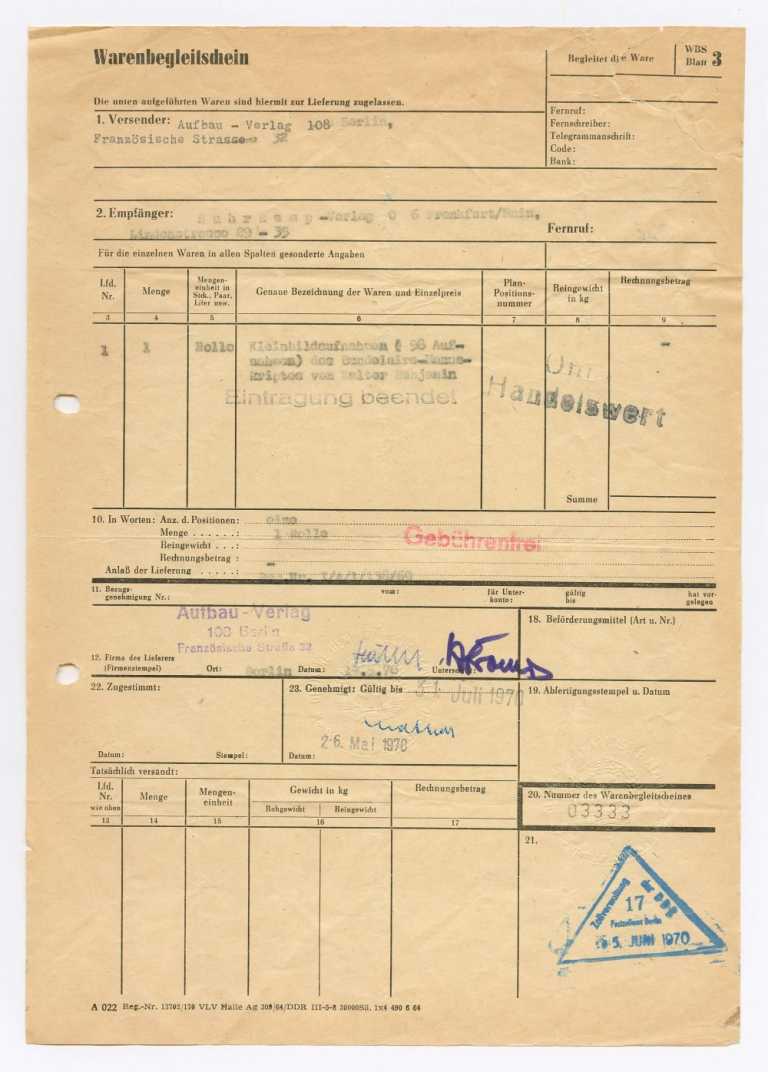 Warenbegleitschein
Begleitet die Ware
WBS
Blatt 3
Die unten aufgeführten Waren sind hiermit zur Lieferung zugelassen.
1. Versender: Aufbau - Verlag 108 Berlin,
Französische Strasse 32
Fernruf:
Fernschreiber:
Telegrammanschrift:
Code:
Bank:
2. Empfänger: Suhrkamp-Verlag 6 Frankfurt/Main,
Lindenstrasse 29 - 35
Fernruf:
Für die einzelnen Waren in allen Spalten gesonderte Angaben
Lfd. Nr.
Menge
Mengen-
einheit in
Stck., Paar,
Liter usw.
Genaue Bezeichnung der Waren und Einzelpreis
Plan-
Positions-
nummer
Reingewicht
in kg
Rechnungsbetrag
3 4 5 6 7 8 9
1 1 Rolle Kleinbildaufnahmen ( 98 Auf-
nahmen) des Baudelaire-Manus-
kriptes von Walter Benjamin
-
Eintragung beendet
Handelswert
Summe
10. In Worten: Anz. d. Positionen: eine
Menge . . . . . . : 1 Rolle
Reingewicht . . . :
Rechnungsbetrag : -
Anlaß der Lieferung . . . . . :
Gebührenfrei
11. Bezugs-
genehmigung Nr.:
vom:
für Unter-
konto:
gültig
bis
hat vor-
gelegen
Aufbau-Verlag
108 Berlin
Französische Straße 32
12. Firma des Lieferers
(Firmenstempel)
Ort: Berlin Datum:
18. Beförderungsmittel (Art u. Nr.)
22. Zugestimmt:
Datum: Stempel:
23. Genehmigt: Gültig bis 31. Juli 1970
26. Mai 1970
Datum:
19. Abfertigungsstempel u. Datum
Tatsächlich versandt:
Lfd.
Nr.
wie oben
Menge
Mengen-
einheit
Gewicht in kg
Rohgewicht Reingewicht
Rechnungsbetrag
13 14 15 16 17
20. Nummer des Warenbegleitscheines
03333
21.
Zollverwaltung der DDR
17
Postzollamt Berlin
5. JUNI 1970
A 022 Reg.-Nr. 13702/170 VLV Halle Ag 309/64/DDR III-5-8